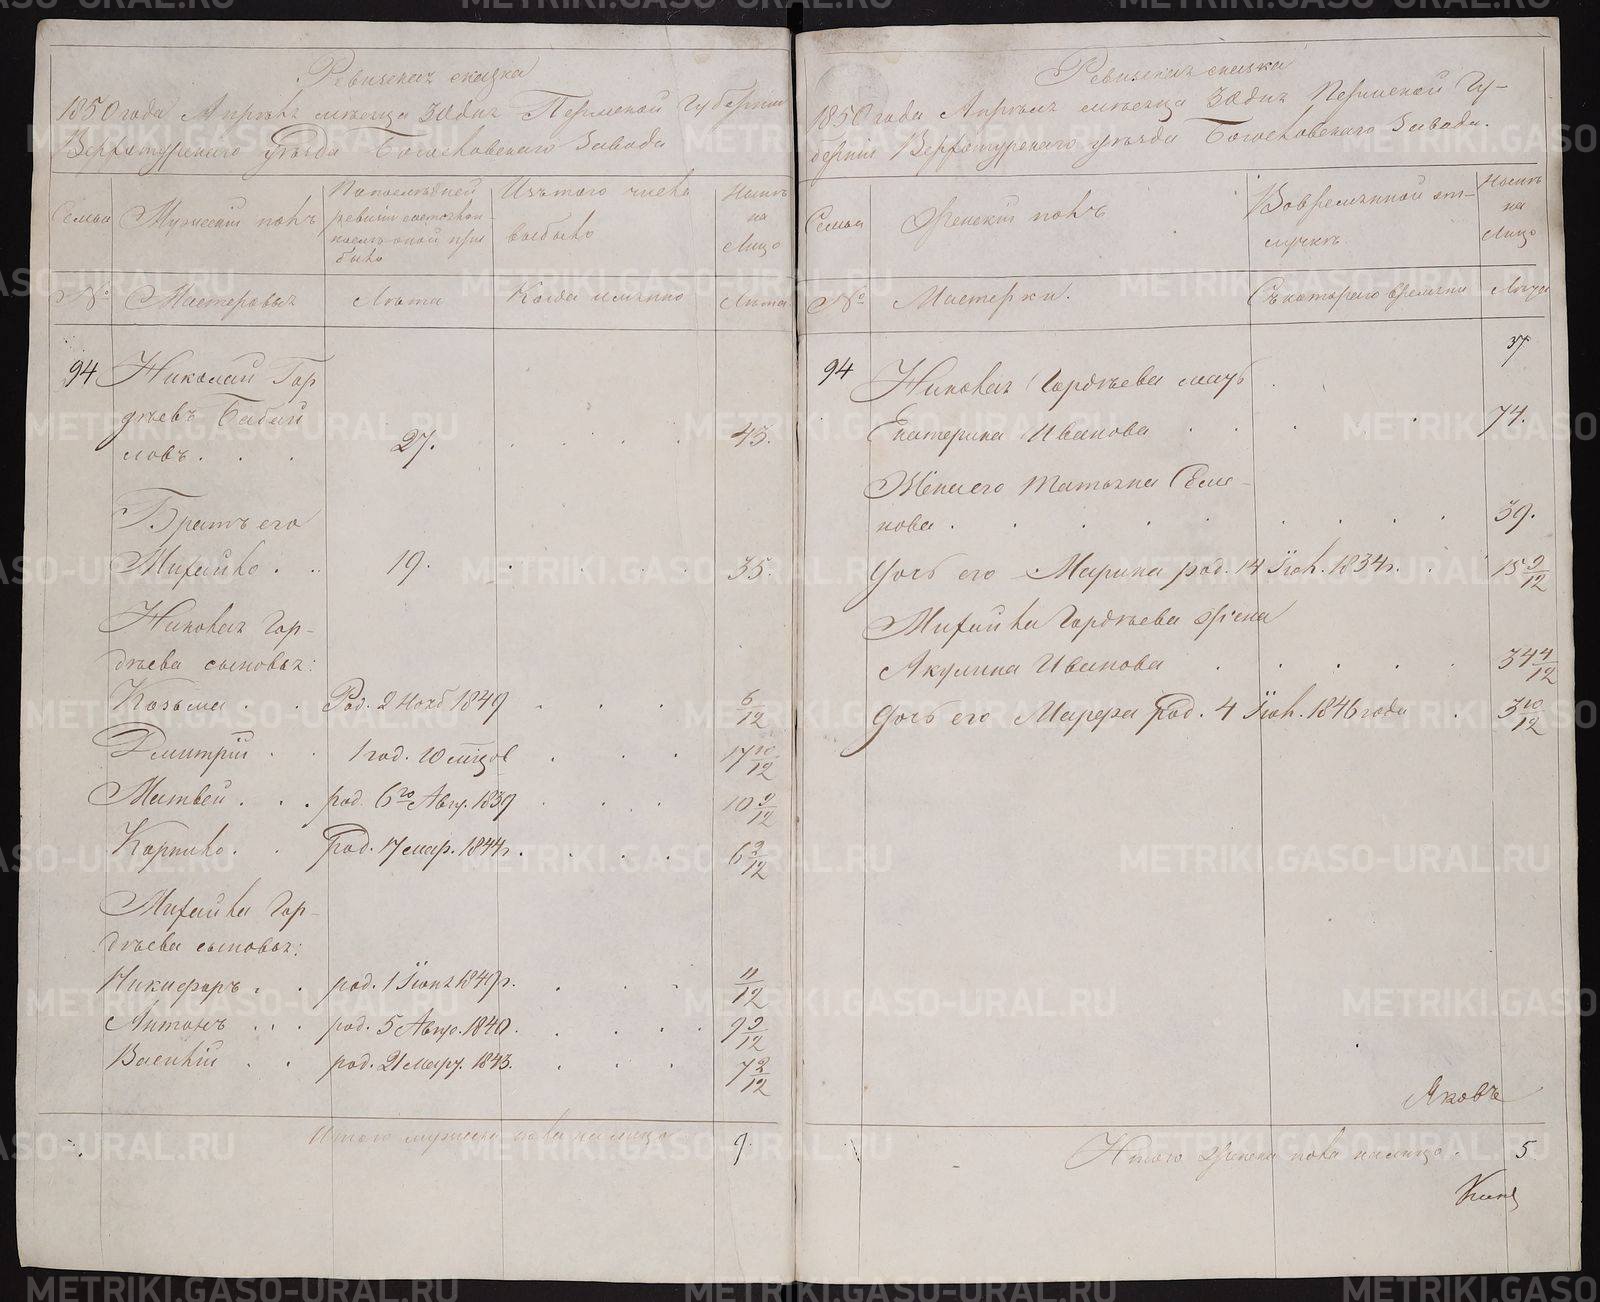 Ревизская сказка
1850 года Апреля месяца 30 дня Пермской Губернии
Верхотурскаго уезда Богословскаго Завода
Семья
Мужеский полъ
По последней
ревизии состояло и
после оной при
было
Изъ того числа
выбыло
Ныне
на
Лицо
№
Мастеровыя
Лета
Когда имянно
Лета
94 Николай Гор
деевъ Бабай
ловъ . . . 27. 43.
Братъ его
Михайло . . 19. 35.
Николая Гор-
деева сыновья:
Козьма . . Род. 2 Нояб 1849 6/12
Дмитрій . . 1 год. 10 месцов 17 10/12
Матвей . . . род. 6го Авгу. 1839 10 9/12
Корнило . . Род. 17 мар. 1844 г. 6 2/12
Михайла Гор-
деева сыновья:
Никифоръ . . род. 1 Іюня 1849 г. 11/12
Антонъ . . . род. 5 Авгус. 1840. 9 9/12
Василій . . род. 21 Мару. 1843. 7 2/12
Итого мужеска пола на лицо 9.
Ревизская сказка
1850 года Апреля месяца 30 дня Пермской Гу-
берніи Верхотурскаго уезда Богословскаго Завода.
Семья
Женскій полъ
Вовременной от-
лучке
Ныне
на
Лицо
№
Мастерки.
Съ котораго времени
Лета
37
94 Николая Гордеева мать
Екатерина Иванова 74.
Жена его Татьяна Семе-
нова . 39.
Дочь его Марина род. 14 Іюл. 1834 г. 15 9/12
Михайла Гордеева жена
Акулина Иванова 34 4/12
Дочь его Марфа Род. 4 Іюл. 1846 года 3 10/12
Яковъ
Итого Женска пола на лицо. 5
METRIKI.GASO-URAL.RU